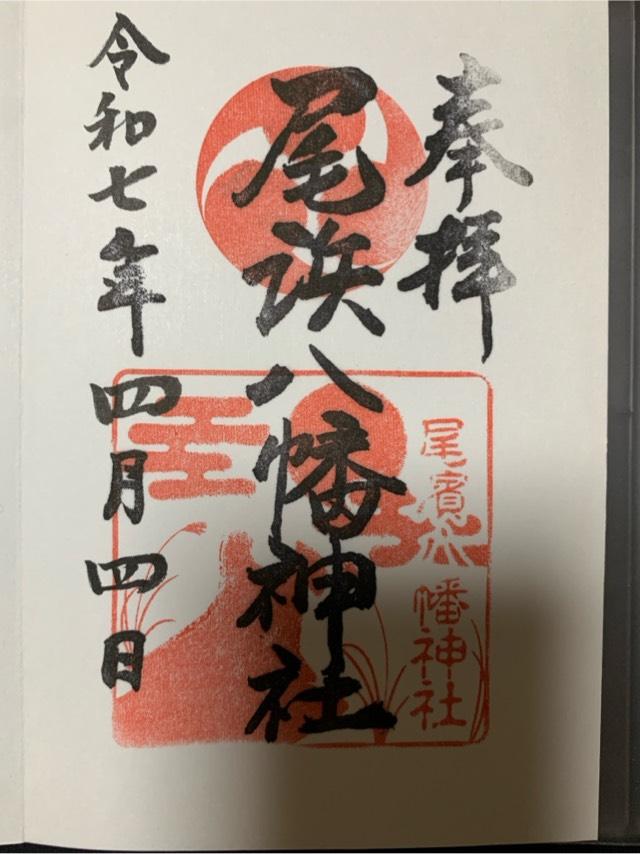 奉拝
尾浜八幡神社
尾濱八幡神社
令和七年四月四日